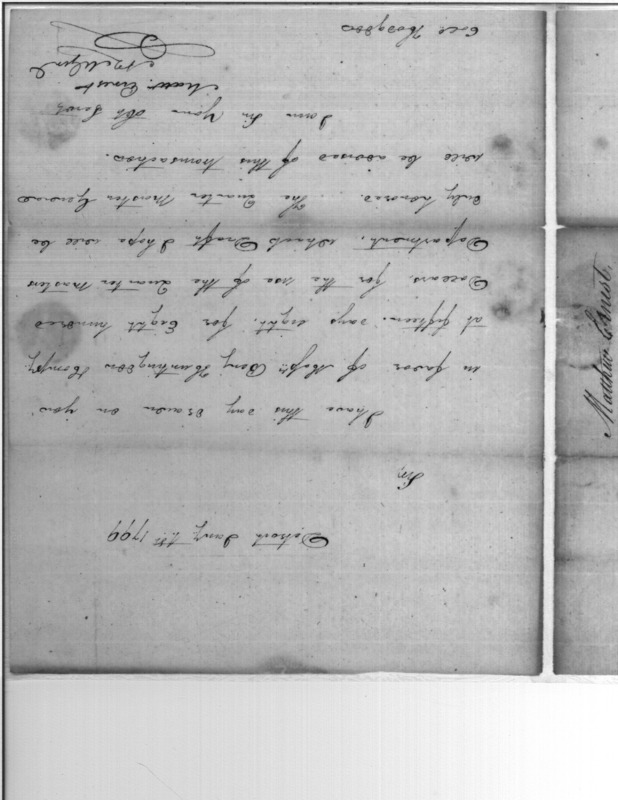 Detroit Jany 1st 1799
Sir,
I have this day drawn on you
in favor of Messrs Benj Huntingdon Compy
at fifteen days sight, for Eight hundred
Dollars, for the use of the Quarter Masters
Department, which Draft I hope will be
duly honored. The Quarter Master General
will be advised of this transaction.
I am Sir Your Obt Servt
Matw. Ernest
Coll Hodgdon
Matthew Ernest.